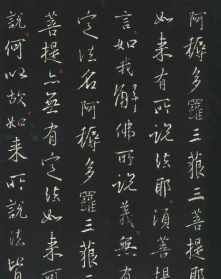 阿耨多羅三藐三菩提
如來有所說法耶須菩提
言如我解佛所說義無有
定法名阿耨多羅三藐三
菩提亦無有定法如來可
說何以故如來所說法皆